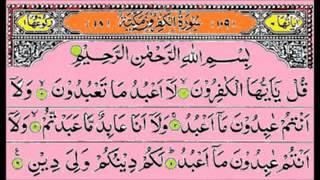 (١٠٩) سُوْرَةُ الْكٰفِرُوْنَ مَكِّيَّةٌ (١٨)
بِسْمِ اللّٰهِ الرَّحْمٰنِ الرَّحِيْمِ
قُلْ يٰٓاَيُّهَا الْكٰفِرُوْنَ لَاۤ اَعْبُدُ مَا تَعْبُدُوْنَ وَلَاۤ
اَنْتُمْ عٰبِدُوْنَ مَاۤ اَعْبُدُ وَلَاۤ اَنَا عَابِدٌ مَّا عَبَدْتُّمْ وَلَاۤ
اَنْتُمْ عٰبِدُوْنَ مَاۤ اَعْبُدُ لَكُمْ دِيْنُكُمْ وَلِيَ دِيْنِ